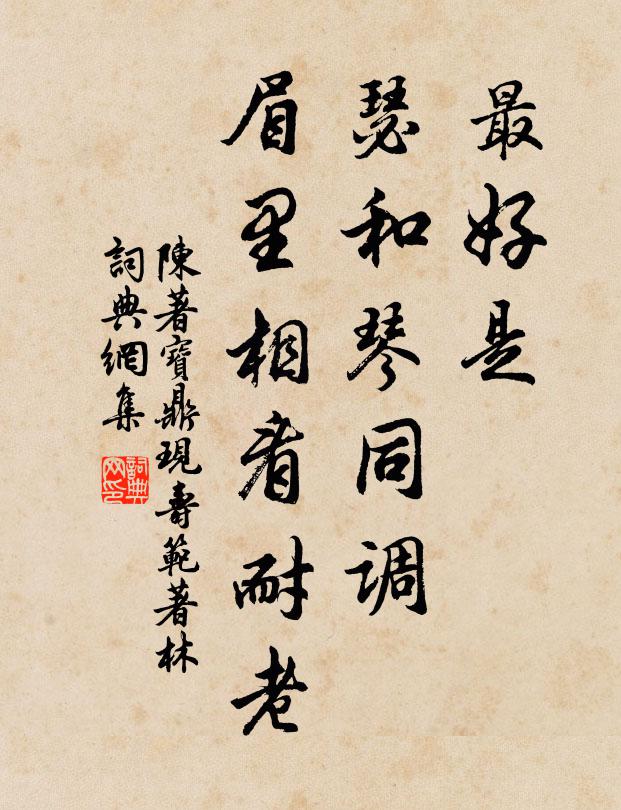 最好是
瑟和琴同调
眉里相看耐老
陳著寶鼎現壽範著林
詞典網集
詞典网印